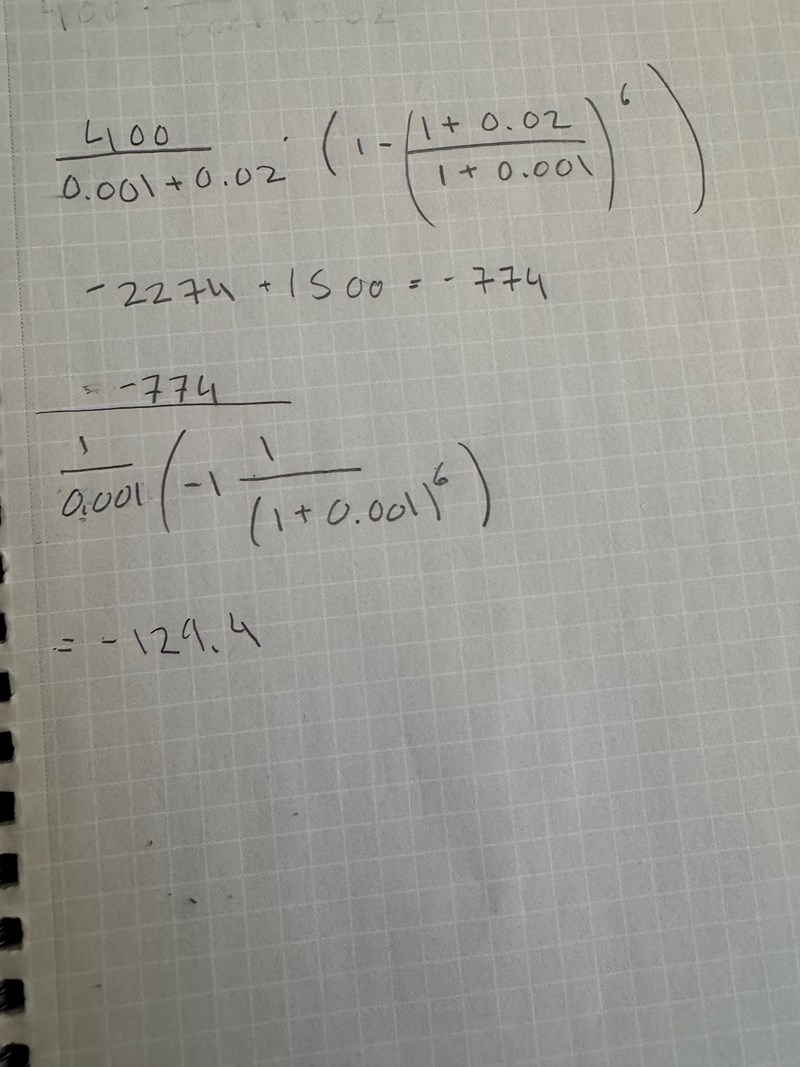 400 / 0.001 + 0.02 · (1 - (1 + 0.02 / 1 + 0.001)^6)
-2274 + 1500 = -774
= -774 / 1 / 0.001 (-1 1 / (1 + 0.001)^6)
= -129.4